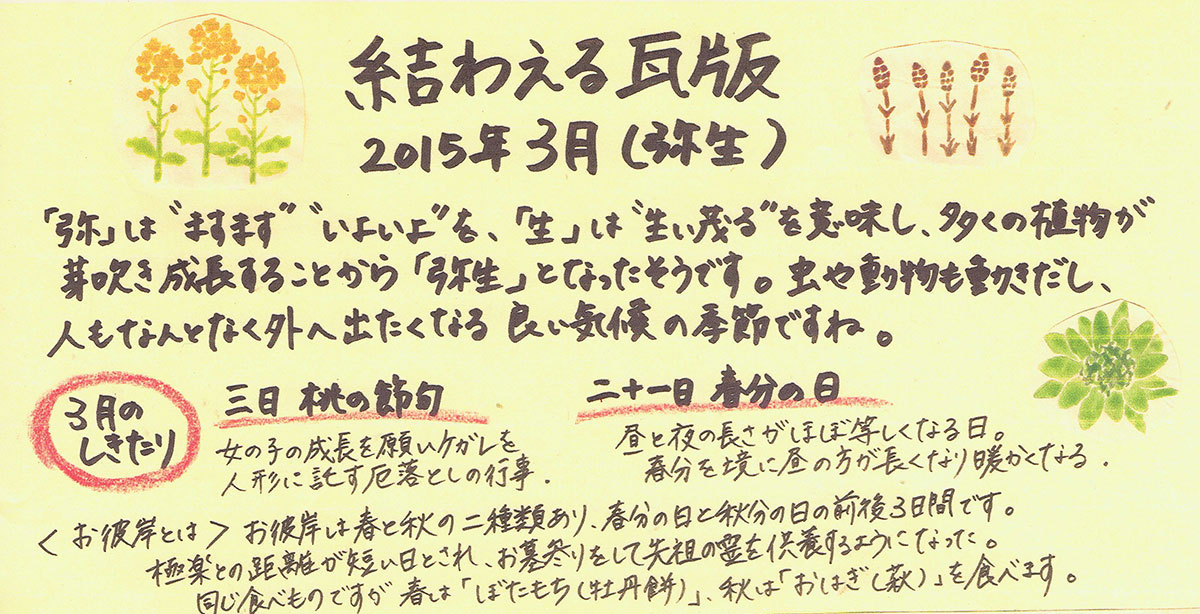 結わえる瓦版
2015年3月(弥生)
「弥」は"ますます""いよいよ"を、「生」は"生い茂る"を意味し、多くの植物が
芽吹き成長することから「弥生」となったそうです。虫や動物も動きだし、
人もなんとなく外へ出たくなる良い気候の季節ですね。
3月の
しきたり
三日 桃の節句
女の子の成長を願いケガレを
人形に託す厄落としの行事.
二十一日 春分の日
昼と夜の長さがほぼ等しくなる日。
春分を境に昼の方が長くなり暖かくなる.
<お彼岸とは> お彼岸は春と秋の二種類あり、春分の日と秋分の日の前後3日間です。
極楽との距離が短い日とされ、お墓参りをして先祖の霊を供養するようになった。
同じ食べものですが春は「ぼたもち(牡丹餅)」、秋は「おはぎ(萩)」を食べます。